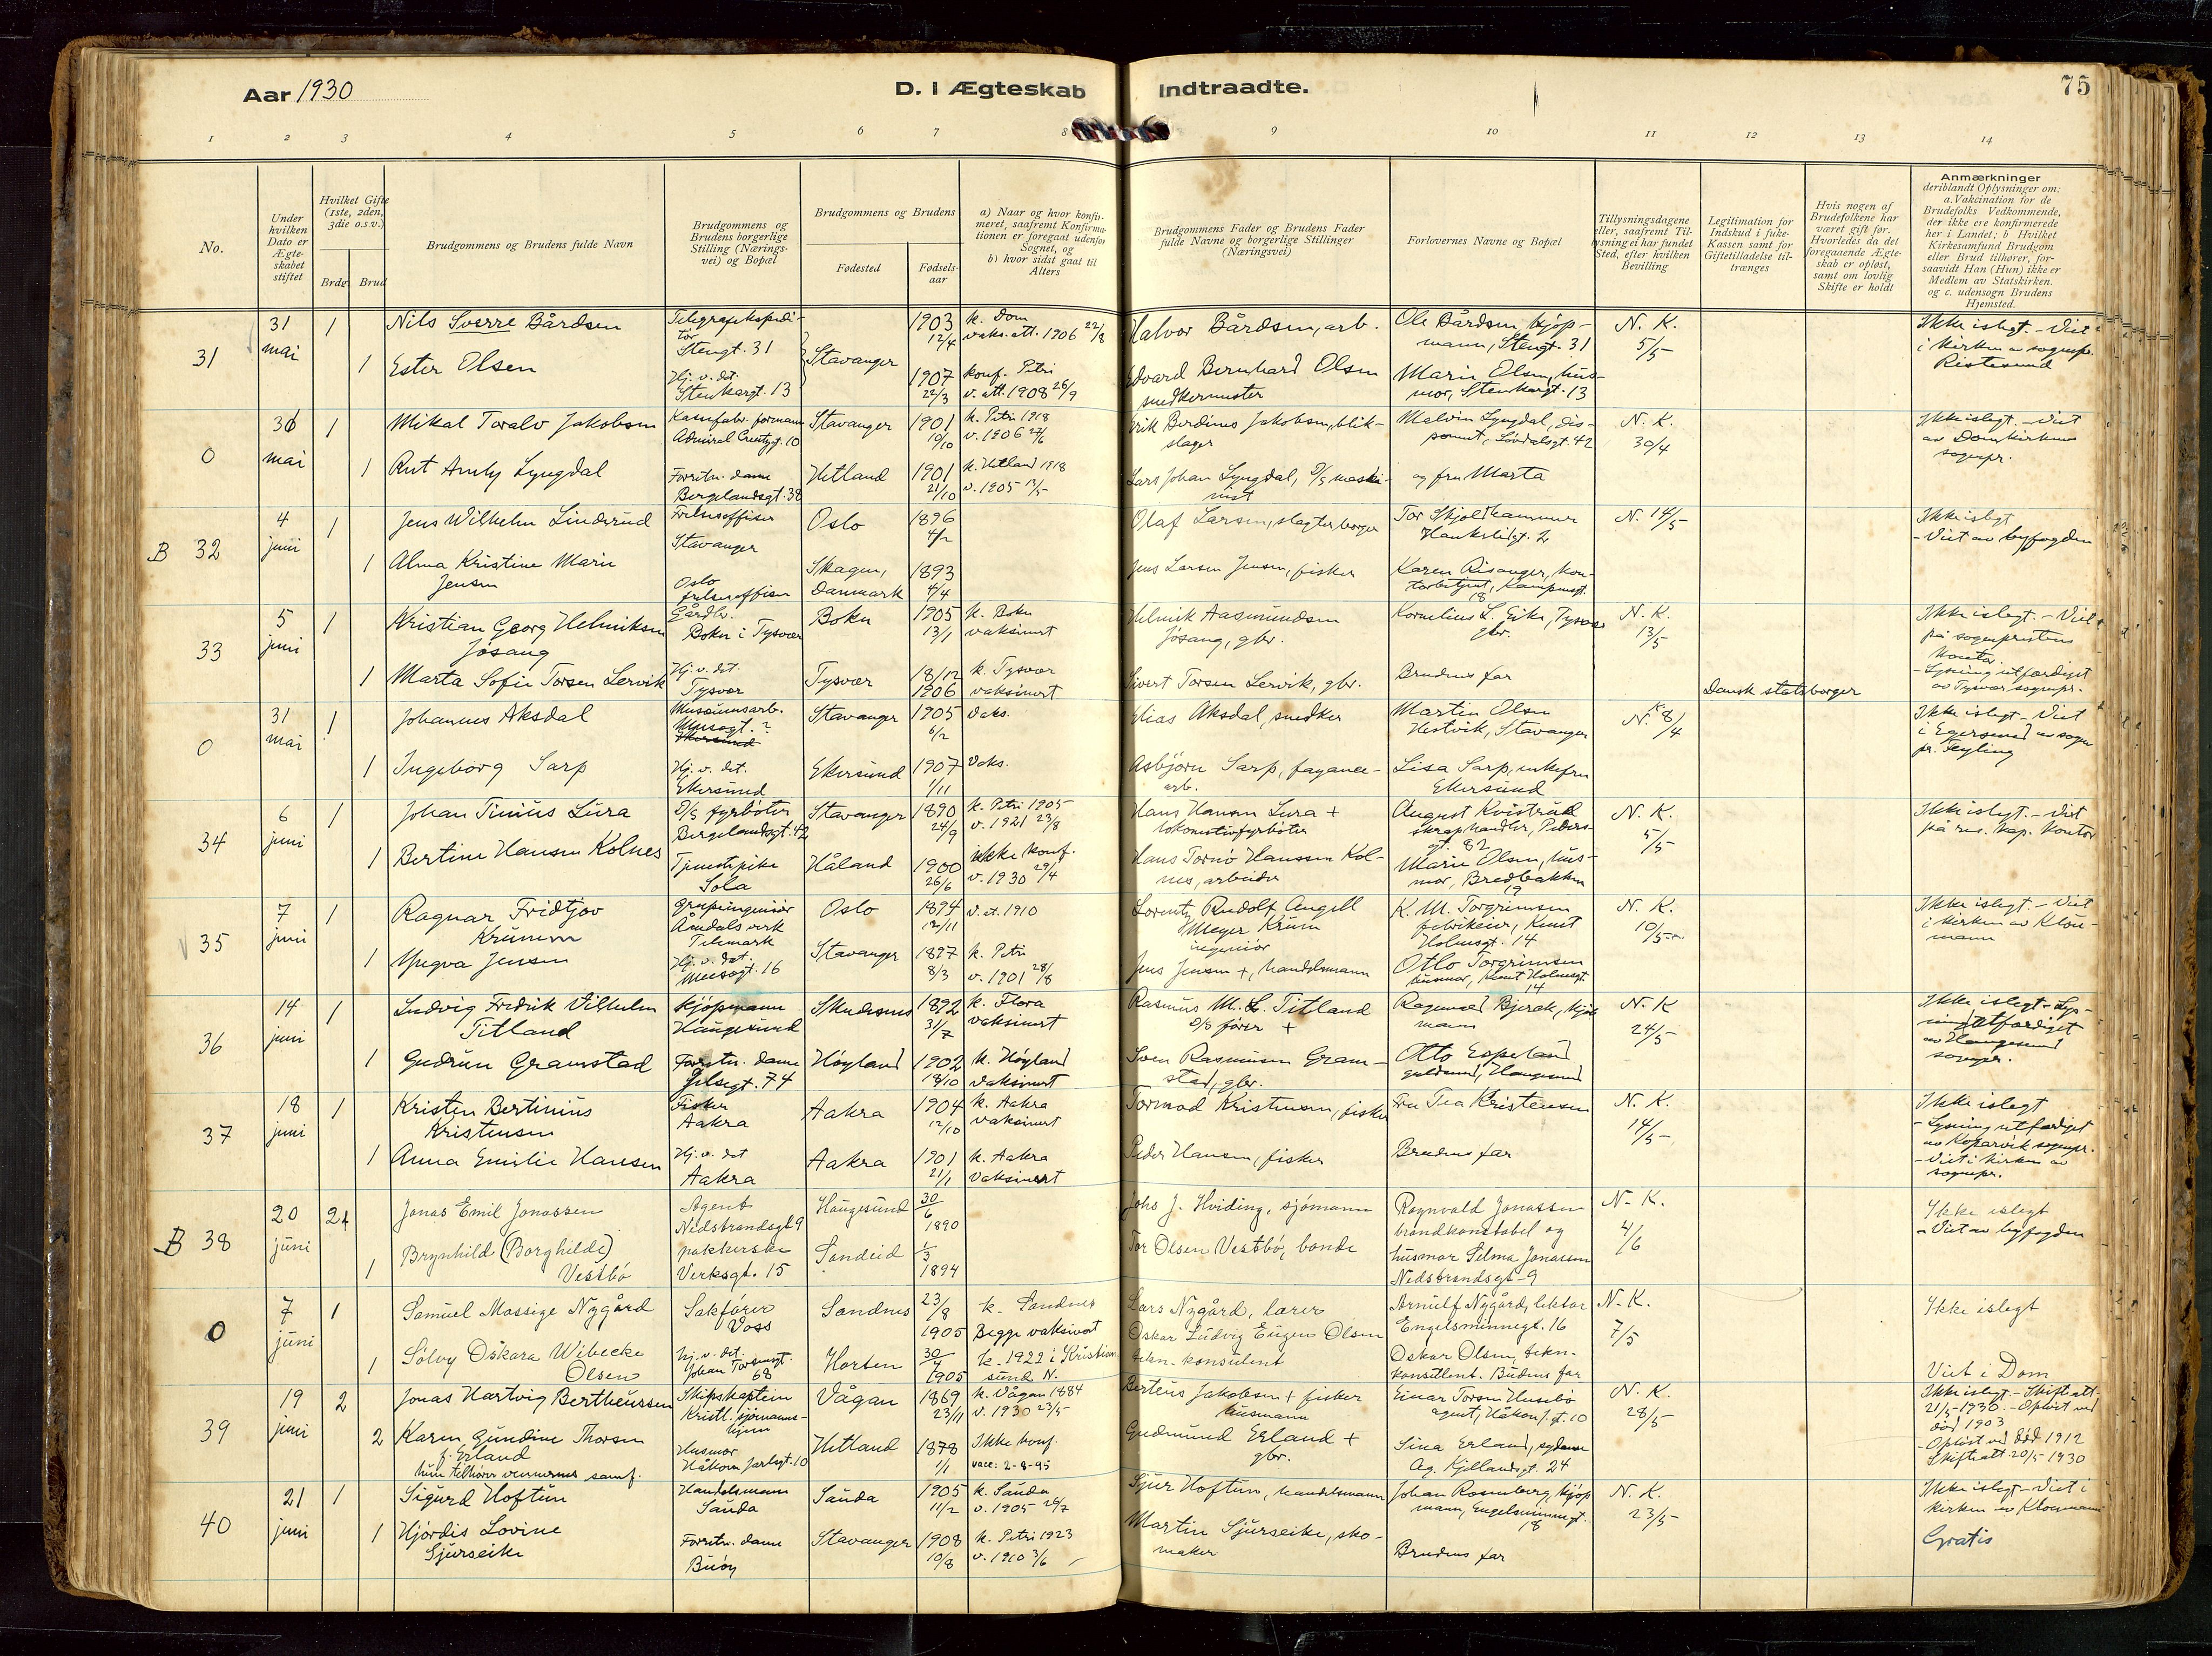 Aar 1930
D. I Ægteskab
Indtraadte.
75
1 2 3 4 5 6 7 8 9 10 11 12 13 14
No.
Under hvilken Dato er Ægteskabet stiftet
Hvilket Gifte (1ste, 2den, 3die o.s.v.)
Brdg. Brud
Brudgommens og Brudens fulde Navn
Brudgommens og Brudens borgerlige Stilling (Næringsvei) og Bopæl
Brudgommens og Brudens
Fødested
Fødselsaar
a) Naar og hvor konfirmeret, saafremt Konfirmationen er foregaat udenfor Sognet, og
b) hvor sidst gaat til Alters
Brudgommens Fader og Brudens Fader fulde Navne og borgerlige Stillinger (Næringsvei)
Forlovernes Navne og Bopæl
Tillysningsdagene eller, saafremt Tillysning ei har fundet Sted, efter hvilken Bevilling
Legitimation for Indskud i Enke-Kassen samt for Giftetilladelse tiltrænges
Hvis nogen af Brudefolkene har været gift før. Hvorledes da det foregaaende Ægteskab er opløst, samt om lovlig Skifte er holdt
Anmærkninger
deriblandt Oplysninger om: a. Vakcination for de Brudefolks Vedkommende, der ikke ere konfirmerede her i Landet; b Hvilket Kirkesamfund Brudgom eller Brud tilhører, forsaavidt Han (Hun) ikke er Medlem av Statskirken. og c. udensogn Brudens Hjemsted.
31
31 mai
1 Nils Sverre Bårdsen
Stengt. 31
1903 12/4
k. Dom
vaks. att. 1906 22/8
Halvor Bårdsen, arb.
Ole Bårdsen, kjøpmann, Stengt. 31
N. K. 5/5
Ikke islegt. - Viet i kirken av sognepr.
1 Ester Olsen
Hj. v. det.
Stenkargt. 13
Stavanger
1907 22/3
konf. Petri
v. att. 1908 26/9
Edvard Bernhard Olsen
snedkermester
Marie Olsen, husmor, Stenkargt. 13
0
mai
1 Mikal Toralv Jakobsen
Stavanger
1901 19/10
k. Petri 1918
v. 1906 27/6
Erik Berdines Jakobsen, blikslager
Malvin Lyngdal, Løvdalsgt. 42
N. K. 30/4
Ikke islegt. - Viet av Domkirkens sognepr.
1 Rut Lyngdal
Forretn. dame
Bergelandsgt. 38
Hetland
1901 21/10
k. Hetland 1918
v. 1905 13/5
Lars Johan Lyngdal, D/S maskinist
og fru Marta
B 32
4 juni
1 Jens Wilhelm Lindsrud
Frelsesoffiser
Stavanger
Oslo
1896 4/2
Olaf Larsen, slagterborger
Tor Skjoldhammer
N. 14/5
Ikke islegt
- Viet av byfogden
1 Alma Kristine Marie Jensen
Oslo
frelsesoffiser
Skagen, Danmark
1893 4/4
Jens Larsen Jensen, fisker
Karen Risanger, 18
33
5 juni
1 Kristian Georg Helmiksen Jøsang
Gårdbr.
Bokn i Tysvær
Bokn
1905 13/1
k. Bokn
vaksinert
Helmik Aasmundsen Jøsang, gbr.
Kornelius L. Eike, Tysvær gbr.
N. K. 13/5
Ikke islegt. - Viet på sogneprestens kontor.
- Lysning utferdiget av Tysvær sognepr.
1 Marta Sofie Torsen Lervik
Hj. v. det.
Tysvær
Tysvær
18/12 1906
k. Tysvær
vaksinert
Sivert Torsen Lervik, gbr.
Brudens far
Dansk statsborger
0
31 mai
1 Johannes Aksdal
Museumsarb.
Musegt. ?
Ekersund
Stavanger
1905 6/2
vaks.
Elias Aksdal, snedker
Martin Olsen Hestvik, Stavanger
N. K. 8/4
Ikke islegt - Viet i Egersund av sognepr. Feyling
1 Ingeborg Sarp
Hj. v. det.
Ekersund
Ekersund
1907 1/11
vaks.
Asbjørn Sarp, fayancearb.
Lisa Sarp, enkefru
Ekersund
34
6 juni
1 Johan Tinius Lura
D/S fyrbøter
Bergelandsgt. 42
Stavanger
1890 24/9
k. Petri 1905
v. 1921 23/8
Hans Hansen Lura +
lokomotivfyrbøter
August Kvistrud
skraphandler, Pedersgt. 82
N. K. 5/5
Ikke islegt. - Viet på res. kap. kontor
1 Bertine Hansen Kolnes
Tjenestepike
Sola
Håland
1900 26/6
ikke konf.
v. 1930 29/4
Hans Tornø Hanssen Kolnes, arbeider
Marie Olsen, husmor, Bredbakken 19
35
7 juni
1 Ragnar Fridtjov
grupeingeniør
Åmdals verk
Telemark
Oslo
1894 12/11
v. at. 1910
Lorentz Rudolf Angell Meyer Krum
ingeniør
K. M. Torgrimsen
fabrikeier, Knut Holmsgt. 14
N. K. 10/5
Ikke islegt. - Viet i kirken av Kloumann
1 Yngva Jensen
Hj. v. det.
Musegt. 16
Stavanger
1897 8/3
k. Petri
v. 1901 28/8
Jens Jensen +, handelsmann
Otto Torgrimsen
husmor, Knut Holmsgt. 14
36
14 juni
1 Ludvig Fredrik Vilhelm Titland
Kjøpmann
Haugesund
Skudesnes
1892 31/7
k. Flora
vaksinert
Rasmus M. L. Titland
D/S fører +
Ragnvald Bjerck, kjøpmann
N. K 24/5
Ikke islegt - Lysning utferdiget av Haugesund sognepr.
1 Gudrun Gramstad
Forretn. dame
74
Høyland
1902 18/10
k. Høyland
vaksinert
Sven Rasmussen Gramstad, gbr.
Otto Espeland
gullsmed, Haugesund
37
18 juni
1 Kristen Bertinius Kristensen
Fisker
Aakra
Aakra
1904 12/10
k. Aakra
vaksinert
Tormod Kristensen, fisker
Fru Tea Kristensen
N. K. 14/5
Ikke islegt
- Lysning utferdiget av Kopervik sognepr.
- Viet i kirken av sognepr.
1 Anna Emilie Hansen
Hj. v. det
Aakra
Aakra
1901 21/1
k. Aakra
vaksinert
Peder Hansen, fisker
Brudens far
B 38
20 juni
Jonas Emil Jonassen
Agent
Nedstrandsgt 9
Haugesund
30/6 1890
Johs J. Hviding, sjømann
Ragnvald Jonassen
brandkonstabel og
husmor Selma Jonassen
Nedstrandsgt - 9
N - K. 4/6
Ikke islegt
- Viet av byfogden
1 Brynhild (Borghilde) Vestbø
pakkerske
Verksgt. 15
Sandeid
1/3 1894
Tor Olsen Vestbø, bonde
0
7 juni
1 Samuel Mossige Nygård
Sakfører
Voss
Sandnes
23/8 1905
k. Sandnes
Begge vaksinert
Lars Nygård, lærer
Arnulf Nygård, lektor
Engelsminnegt. 16
N - K. 7/5
Ikke islegt
1 Sølvy Oskara Wibecke Olsen
hj. v. det.
Johan Torsensgt. 68
Horten
30/4 1905
k. 1922 i Kristiansund N.
Oskar Ludvig Eugen Olsen
tekn. konsulent
Oskar Olsen, tekn-konsulent. Brudens far
Viet i Dom
39
19 juni
2 Jonas Hartvig Bertheussen
Skipskaptein
Kristl. sjømannshjem
Vågan
1869 23/11
k. Vågan 1884
v. 1930 23/5
Berteus Jakobsen + fisker
husmann
Einar Torsen Husebø
agent, Håkon J. gt. 10
N. K. 28/5
Ikke islegt - Skifteatt. 21/5 - 1930. - Opløst ved død 1903
- Opløst ved død 1912
Skifteatt 20/5 - 1930
2 Karen Gundine Thorsen f. Erland
hun tilhører vennernes samf.
Husmor
Håkon Jarlsgt. 10
Hetland
1878 1/1
Ikke konf.
vacc: 2-8-95
Gudmund Erland + gbr.
Sina Erland, sydame
Ag. Kjellandsgt. 24
40
21 juni
1 Sigurd Hoftun
Handelsmann
Sauda
Sauda
1905 11/2
k. Sauda
v. 1905 26/7
Sjur Hoftun, handelsmann
Johan Rosenberg, kjøpmann, Engelsminnegt. 18
N. K. 23/5
Ikke islegt - Viet i kirken av Kloumann
1 Hjørdis Lovine Sjurseike
Forretn. dame
Buøy
Stavanger
1908 19/8
k. Petri 1923
v. 1910 3/6
Martin Sjurseike, skomaker
Brudens far
Gratis